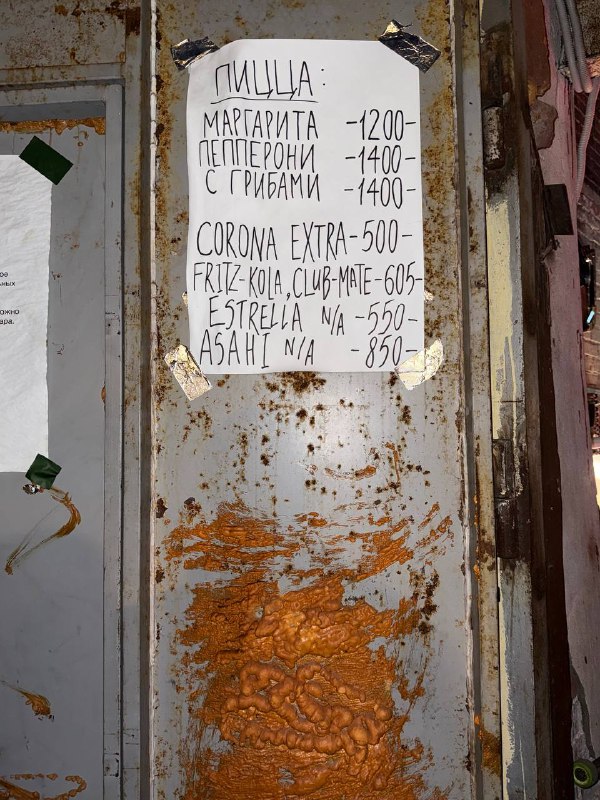 ПИЦЦА:
МАРГАРИТА -1200-
ПЕППЕРОНИ -1400-
С ГРИБАМИ -1400-
CORONA EXTRA-500-
FRITZ-KOLA, CLUB-MATE-605-
ESTRELLA N/A -550-
ASAHI N/A -850-